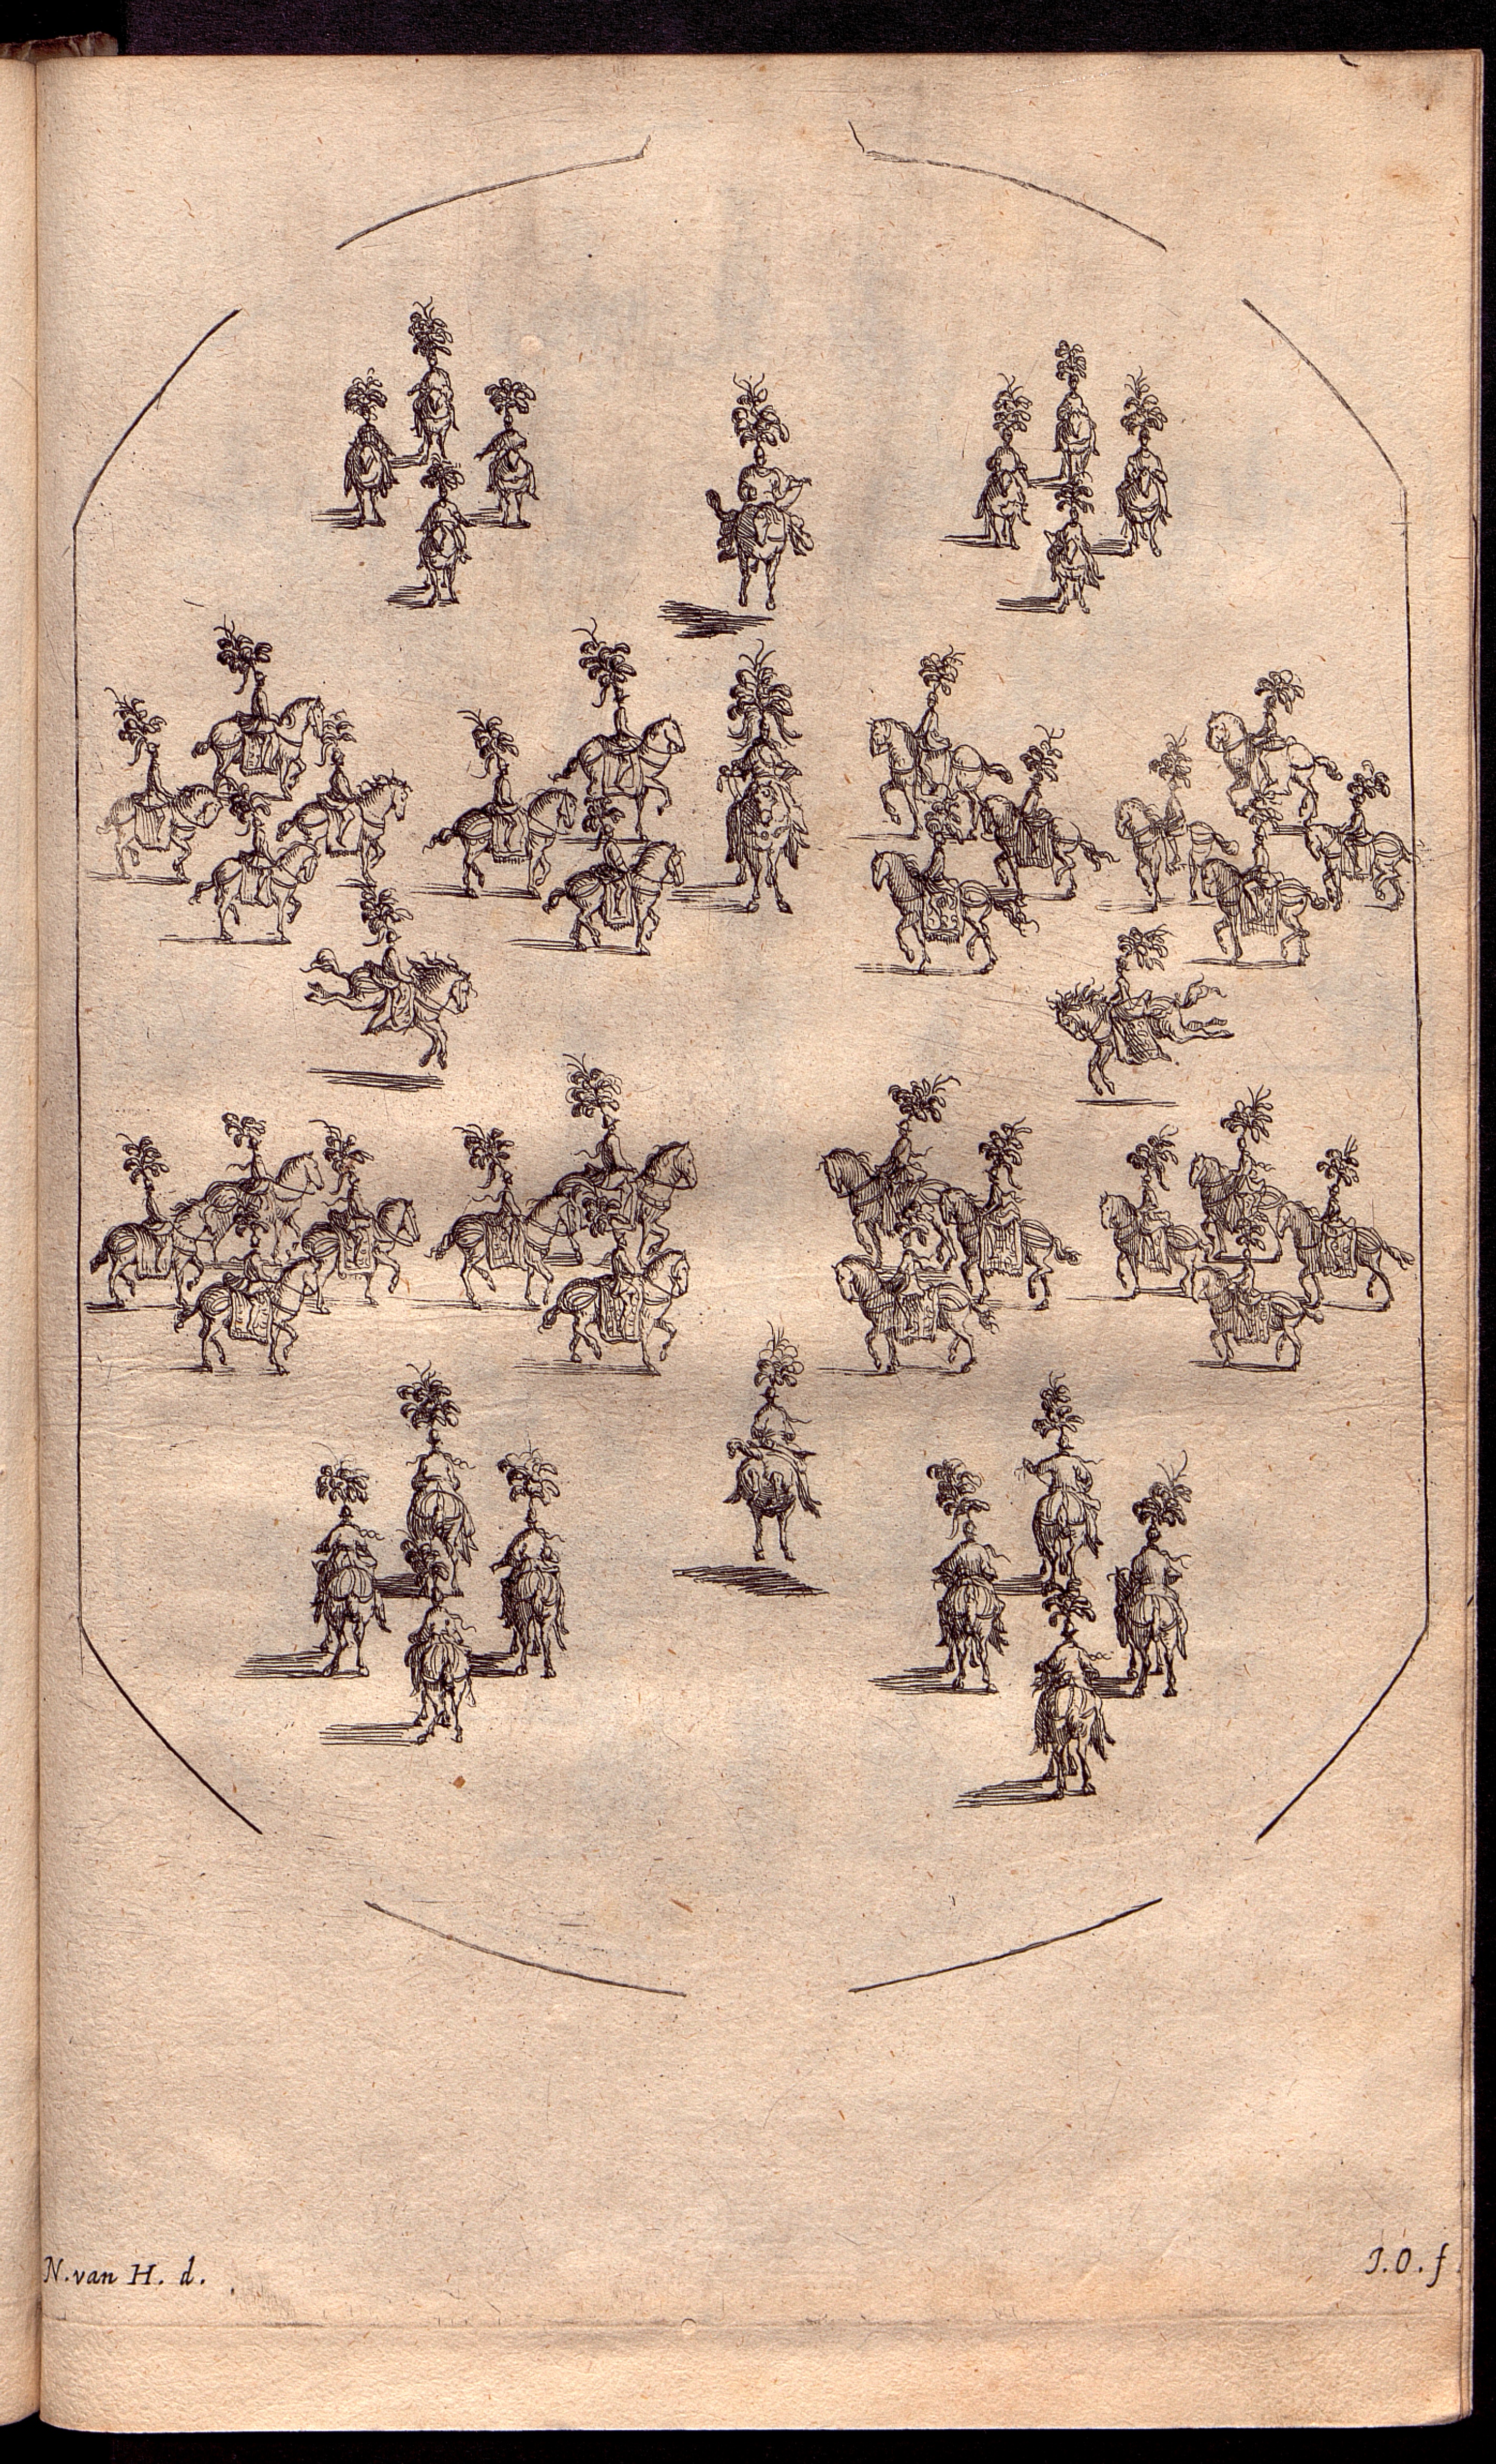 N. van H. d.
J. O. f.